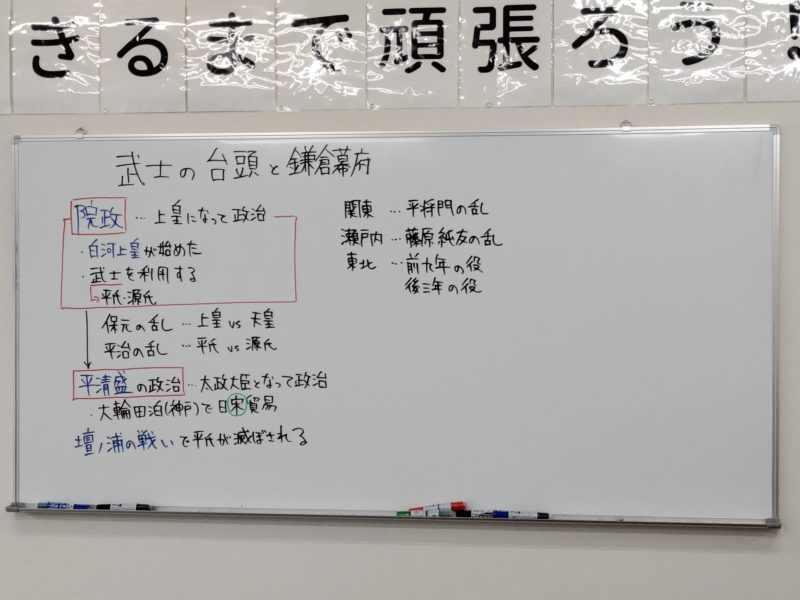 きるまで頑張ろう！
武士の台頭と鎌倉幕府
院政 … 上皇になって政治
・白河上皇が始めた
・武士を利用する
↳平氏・源氏
保元の乱 … 上皇 vs 天皇
平治の乱 … 平氏 vs 源氏
平清盛の政治 … 太政大臣となって政治
・大輪田泊(神戸)で日宋貿易
壇ノ浦の戦いで平氏が滅ぼされる
関東 … 平将門の乱
瀬戸内 … 藤原純友の乱
東北 … 前九年の役
後三年の役